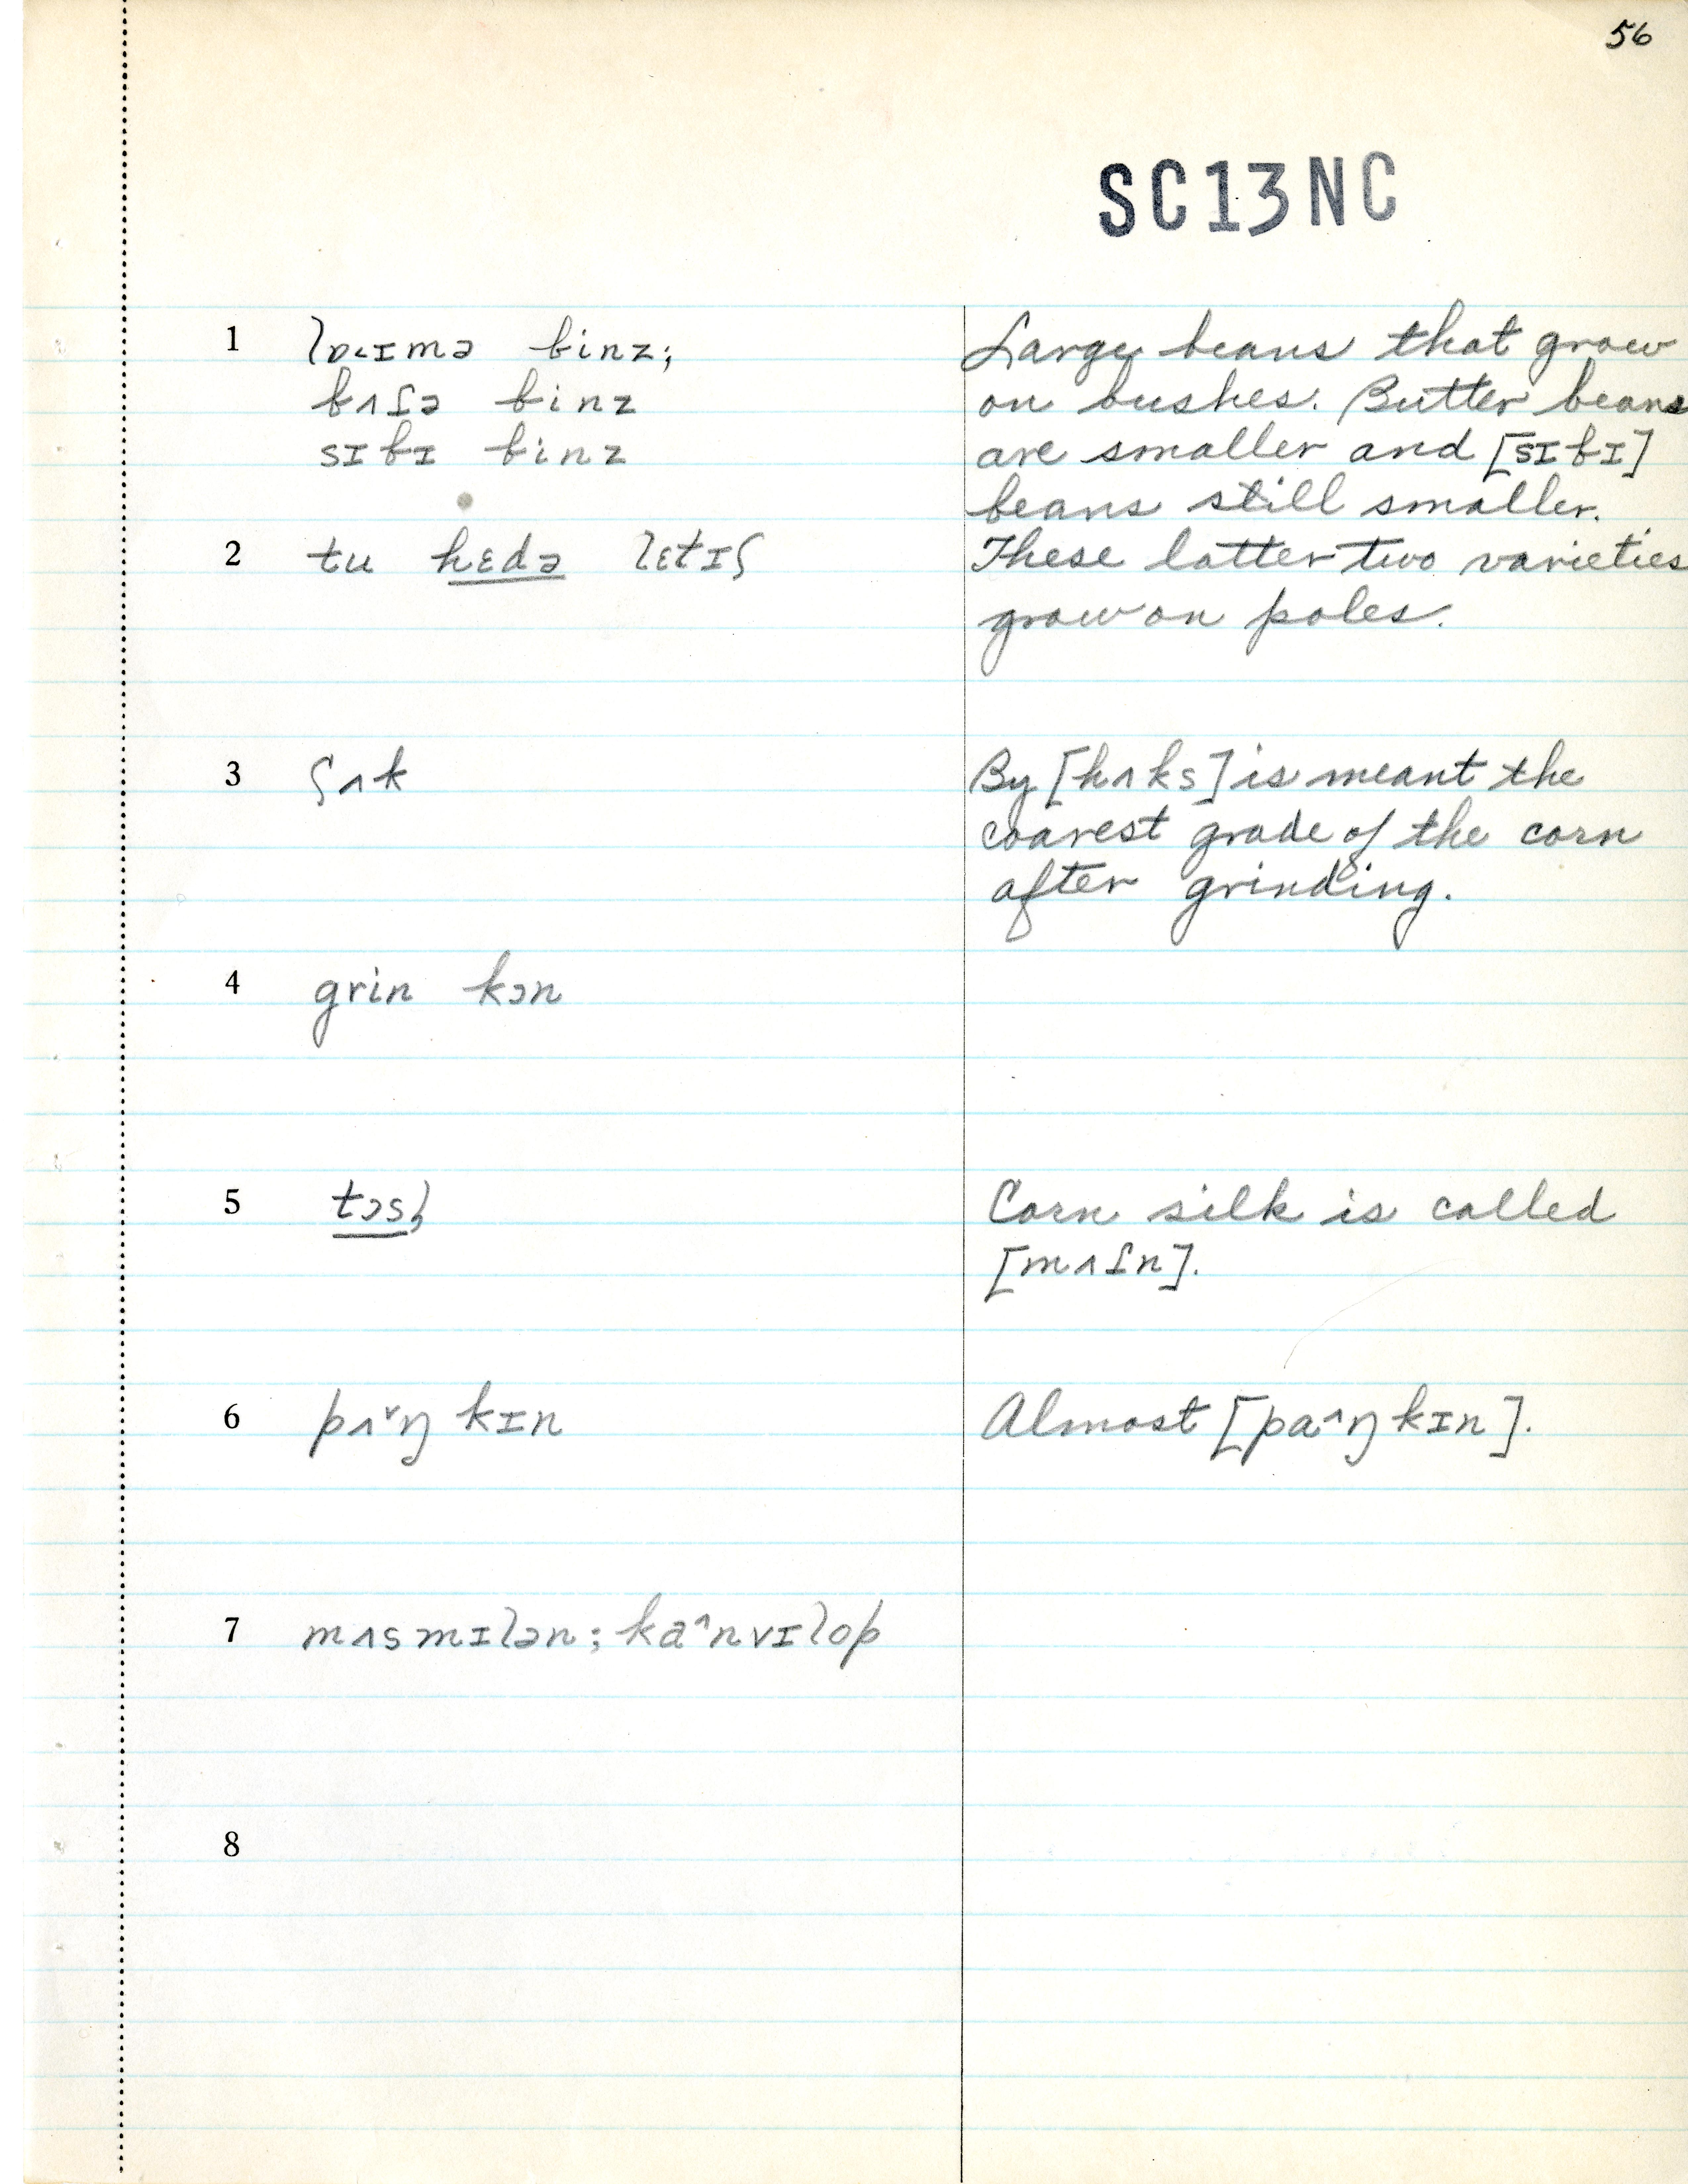 56
SC13NC
1 lɒ˂ɪmə binz;
bʌɾə binz
sɪbɪ binz
2 tu hɛdə lɛtɪʂ
3 ʂʌk
4 grin kɔn
5 tɔsl̩
6 pʌ˅ŋkɪn
7 mʌsmɪlən; ka˄nvɪlop
8
Large beans that grow
on bushes. Butter beans
are smaller and [sɪbɪ]
beans still smaller.
These latter two varieties
grow on poles.
By [hʌks] is meant the
coarest grade of the corn
after grinding.
Corn silk is called
[mʌɾn].
Almost [pa˄ŋkɪn].